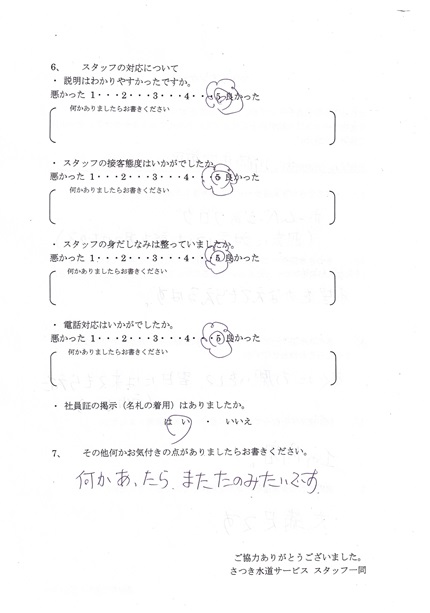 6、 スタッフの対応について
・ 説明はわかりやすかったですか。
悪かった 1・・・2・・・3・・・4・・・5 良かった
何かありましたらお書きください
・ スタッフの接客態度はいかがでしたか。
悪かった 1・・・2・・・3・・・4・・・5 良かった
何かありましたらお書きください
・ スタッフの身だしなみは整っていましたか。
悪かった 1・・・2・・・3・・・4・・・5 良かった
何かありましたらお書きください
・ 電話対応はいかがでしたか。
悪かった 1・・・2・・・3・・・4・・・5 良かった
何かありましたらお書きください
・ 社員証の掲示（名札の着用）はありましたか。
はい ・ いいえ
7、 その他何かお気付きの点がありましたらお書きください。
何かあったら、またたのみたいです。
ご協力ありがとうございました。
さつき水道サービス スタッフ一同